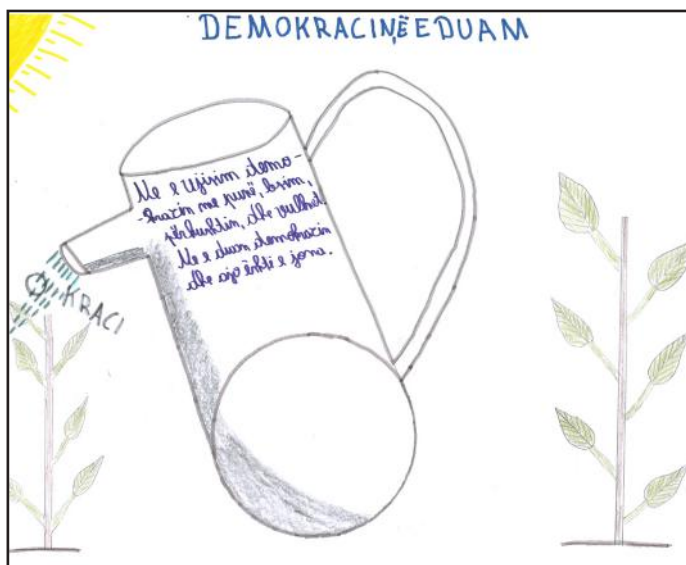 DEMOKRACINË E DUAM
Ne e ujisim demo-
-kracin me punë, besim,
përkushtim, dhe vullnet.
Ne e duam demokracin
dhe ajo është e jona.
KRACI